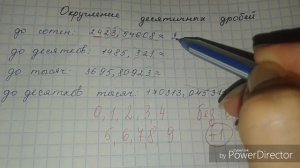 Округление десятичных дробей
до сотен: 2423,54608 ≈
до десятков: 1485,321 ≈
до тысяч: 3695,80923 ≈
до десятков тысяч: 170313,0453
0, 1, 2, 3, 4 без
5, 6, 7, 8, 9 +1
PowerDirector